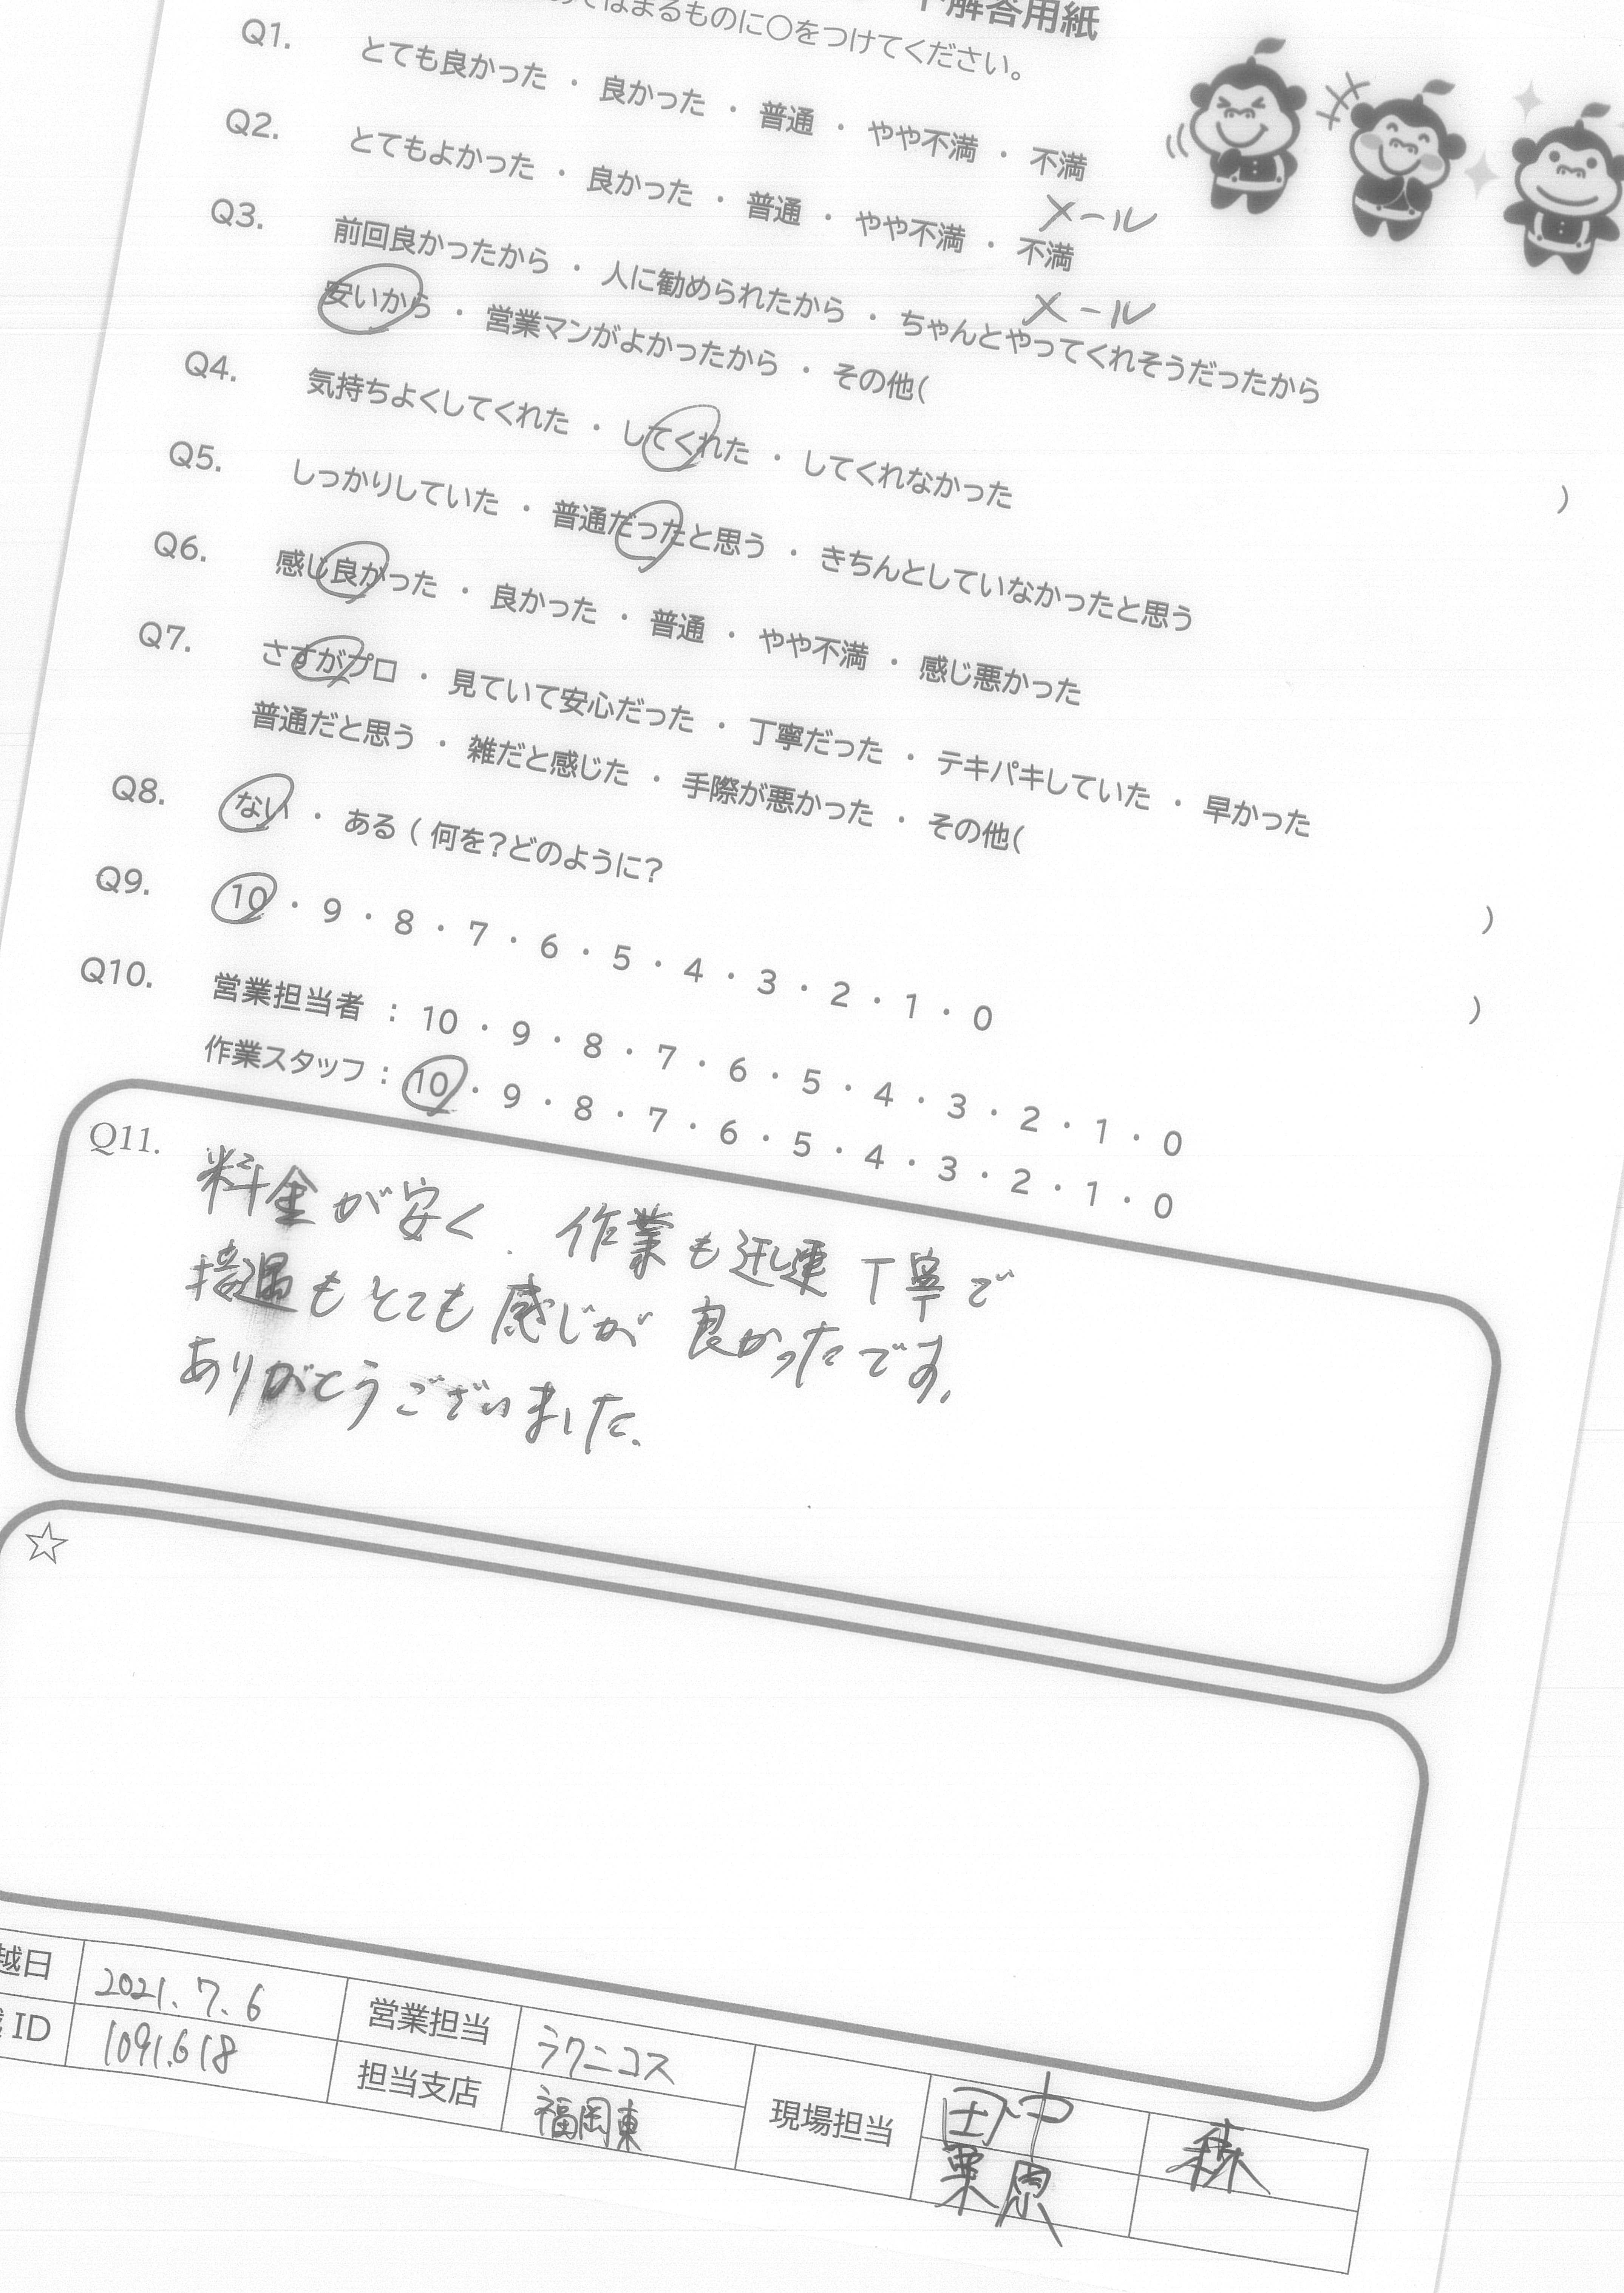 解答用紙
はまるものに○をつけてください。
Q1. とても良かった ・ 良かった ・ 普通 ・ やや不満 ・ 不満
メール
Q2. とてもよかった ・ 良かった ・ 普通 ・ やや不満 ・ 不満
メール
Q3. 前回良かったから ・ 人に勧められたから ・ ちゃんとやってくれそうだったから
安いから ・ 営業マンがよかったから ・ その他( )
Q4. 気持ちよくしてくれた ・ してくれた ・ してくれなかった
Q5. しっかりしていた ・ 普通だったと思う ・ きちんとしていなかったと思う
Q6. 感じ良かった ・ 良かった ・ 普通 ・ やや不満 ・ 感じ悪かった
Q7. さすがプロ ・ 見ていて安心だった ・ 丁寧だった ・ テキパキしていた ・ 早かった
普通だと思う ・ 雑だと感じた ・ 手際が悪かった ・ その他( )
Q8. ない ・ ある ( 何を?どのように? )
Q9. 10 ・ 9 ・ 8 ・ 7 ・ 6 ・ 5 ・ 4 ・ 3 ・ 2 ・ 1 ・ 0
Q10. 営業担当者 : 10 ・ 9 ・ 8 ・ 7 ・ 6 ・ 5 ・ 4 ・ 3 ・ 2 ・ 1 ・ 0
作業スタッフ : 10 ・ 9 ・ 8 ・ 7 ・ 6 ・ 5 ・ 4 ・ 3 ・ 2 ・ 1 ・ 0
Q11. 料金が安く、作業も迅速丁寧で
接遇もとても感じが良かったです。
ありがとうございました。
☆
越日 2021.7.6 営業担当 ラクニコス 現場担当 田中 森
ID 1091618 担当支店 福岡東 栗原